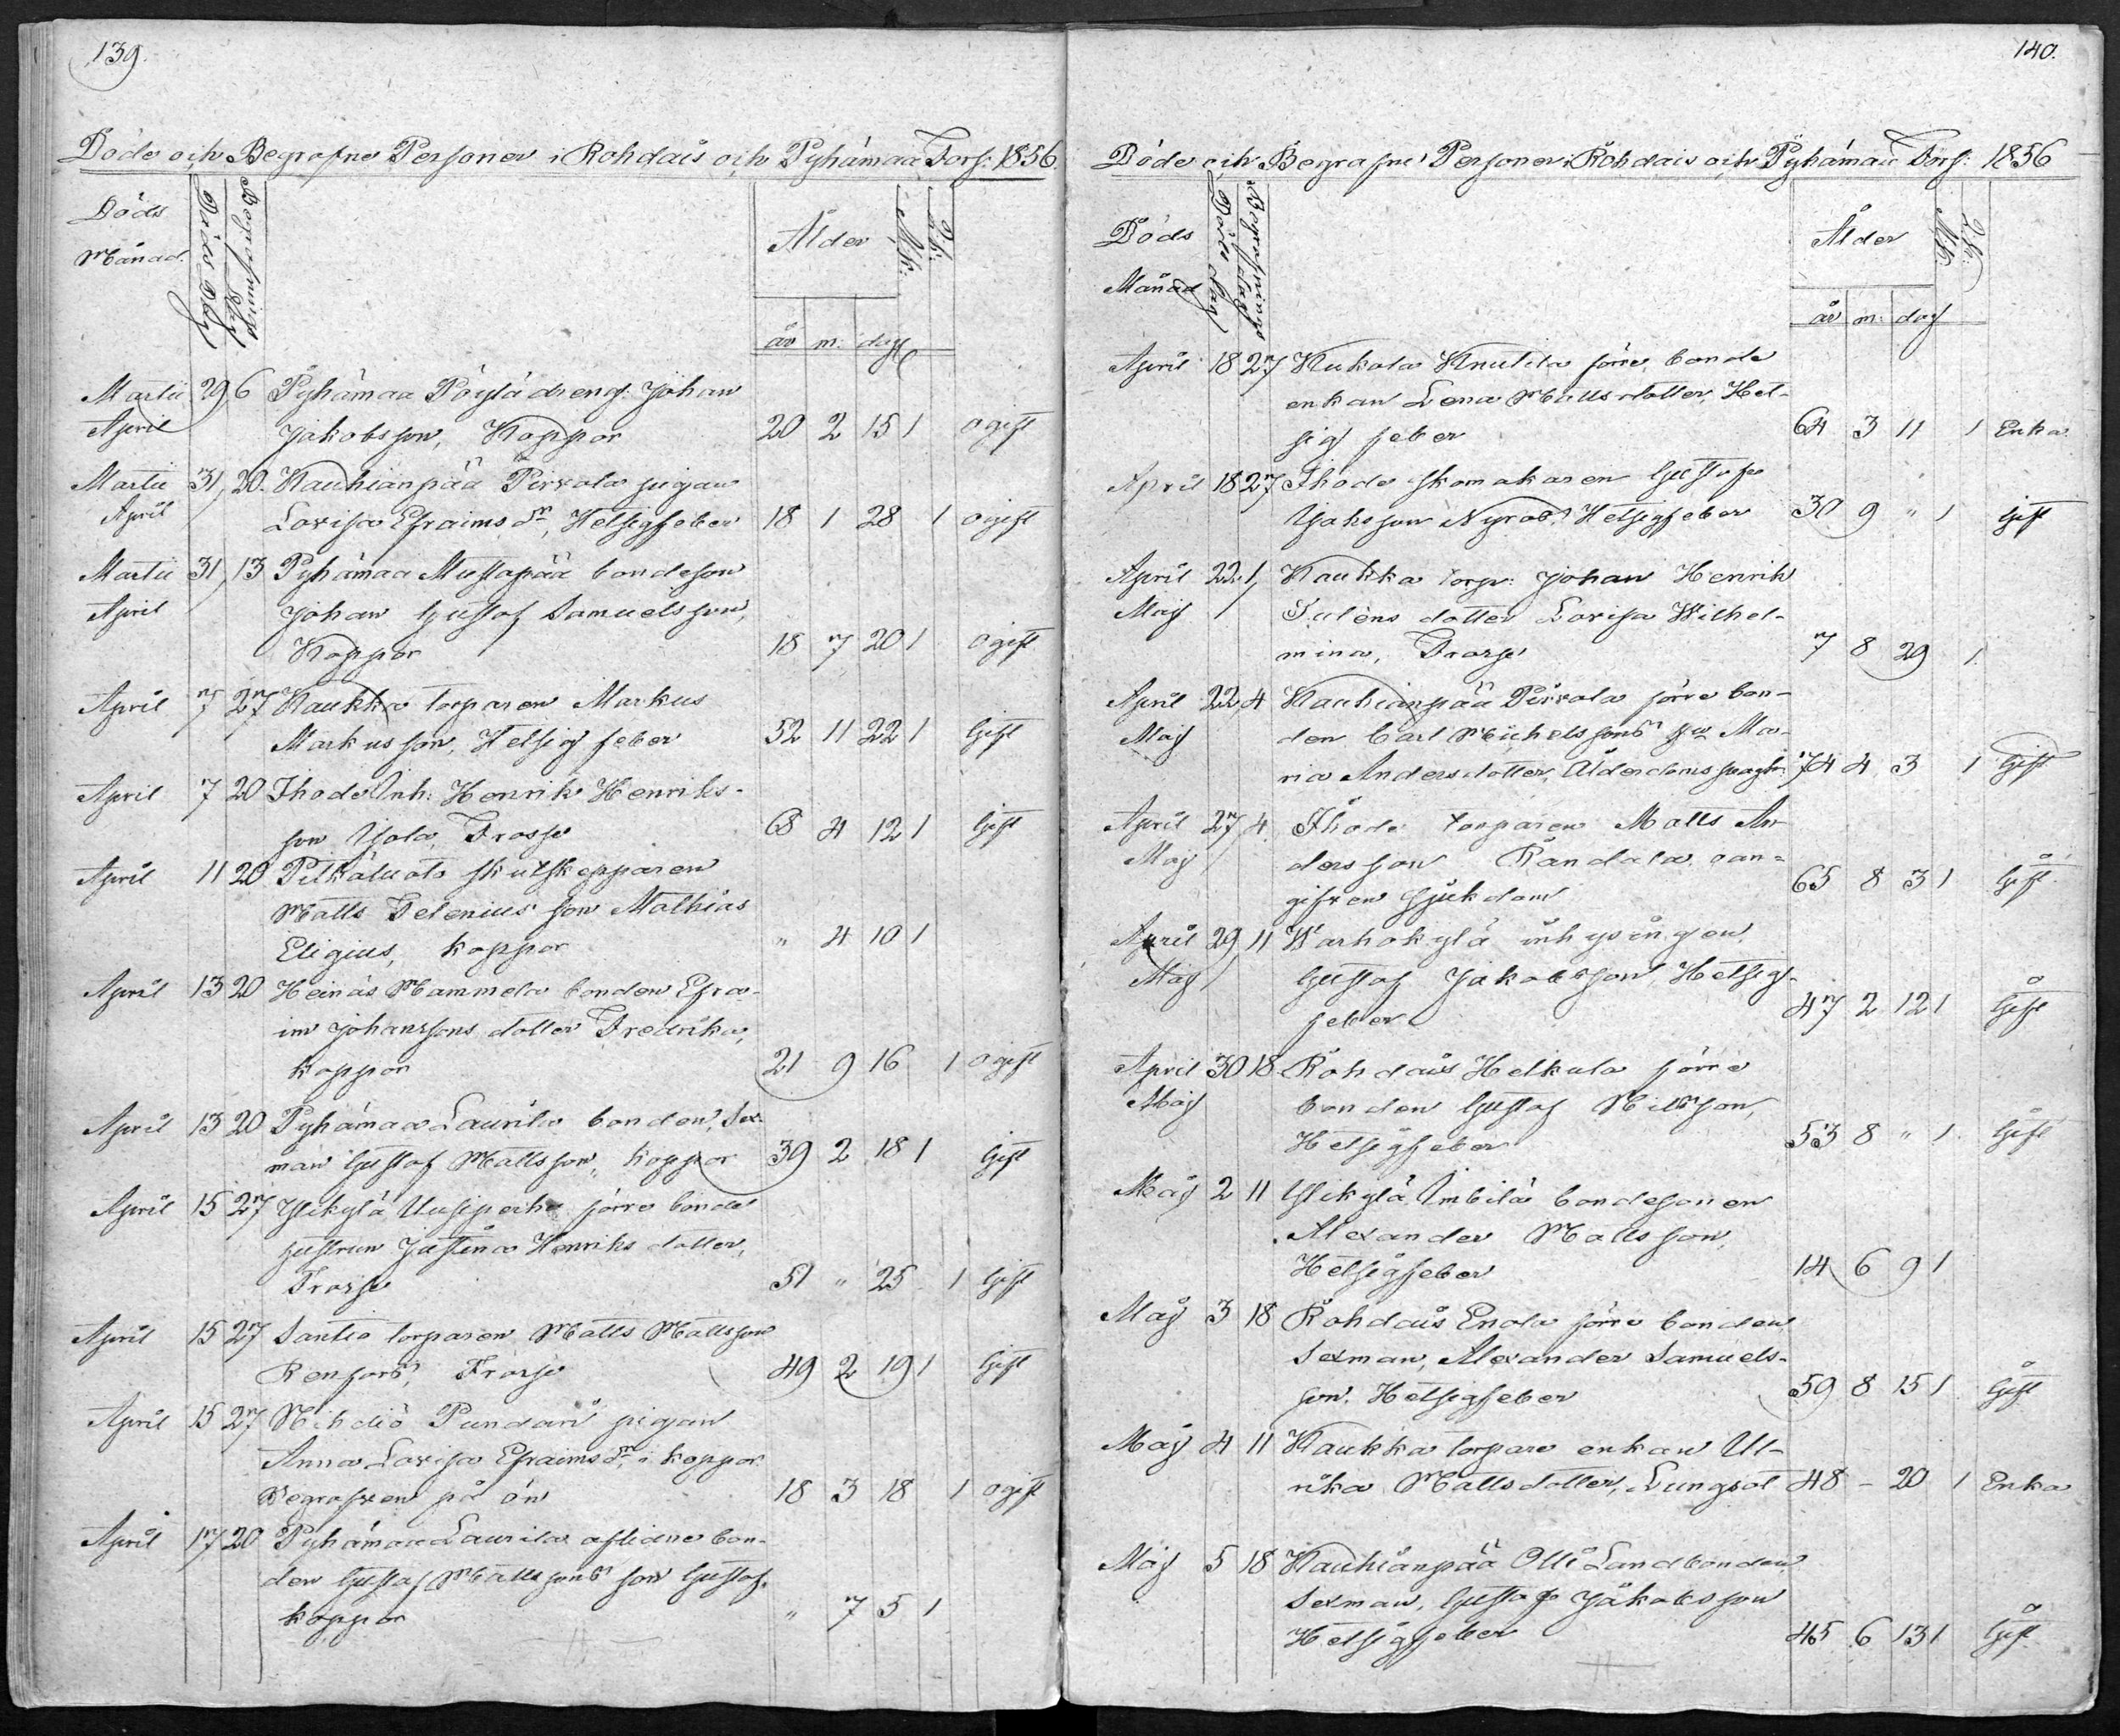 139.
Döde och Begrafne Personer i Rohdais och Pyhämaa Fors: 1856.
Döds Månad. Döds Dag Begrafnings Dag Ålder M.k: Q.k:
år m: dag
Martii 29 6 Pyhämaa Pöylä dreng: Johan
April Jakobsson, Koppor 20 2 15 1 ogift
Martii 31, 20. Kauhianpää Pirvola pigan
April Lovisa Efraims dr, Hetsigfeber 18 1 28 1 ogift
Martii 31, 13 Pyhämaa Mustapää bondeson
April Johan Gustaf Samuelsson,
Koppor 18 7 20 1 ogift
April 7 27 Kaukka torparen Markus
Markusson, Hetsig feber 52 11 22 1 Gift
April 7 20 Ihode Inh: Henrik Henriks-
son Yola, Frosse 68 4 12 1 Gift
April 11 20 Pitkäluoto skutskepparen
Matts Telenius son Mathias
Eligius, koppor " 4 10 1
April 13 20 Heinäs Mammela bonden Efra-
im Johanssons dotter Fredrika,
koppor 21 9 16 1 ogift
April 13 20 Pyhämaa Laurila bonden, Sex-
man Gustaf Mattsson, koppor 39 2 18 1 Gift
April 15 27 Ylikylä Uusiperho förre bonde
hustrun Justina Henriks dotter,
Frosse 51 " 25 1 Gift
April 15 27 Santio torparen Matts Mattsson
Renfors, Frosse 49 2 19 1 Gift
April 15 27 Nihdiö Pundari pigan
Anna Lovisa Efraims dr, i koppor.
Begrafven på ön 18 3 18 1 ogift
April 17 20 Pyhämaa Laurila aflidne bon-
den Gustaf Mattssons son Gustaf,
koppor " 7 5 1
140.
Döde och Begrafne Personer i Rohdais och Pyhämaa Fors: 1856
Döds Månad Döds dag Begrafnings dag Ålder M.k: Q.k:
år m: dag
April 18 27 Kukola Knutila förre bonde
enkan Lena Matts dotter, Het-
sig feber 64 3 11 1 Enka
April 18 27 Ihode skomakaren Gustaf
Isaksson Nyroos, Hetsigfeber 30 9 " 1 Gift
April 22. 1, Kaukka torp: Johan Henrik
Maj Tulens dotter Lovisa Wilhel-
mina, Frosse 7 8 29 1.
April 22 4 Kauhianpää Pirvola förre bon-
Maj den Carl Michelssons hu Ma-
ria Andersdotter, Ålderdoms svaghet 74 4 3 1 Gift
April 27 4. Ihode torparen Matts An-
Maj dersson Rändälä, oan-
gifven sjukdom 65 8 3 1 Gift
April 29, 11 Warhokylä inhysingen
Maj Gustaf Jakobsson, Hetsig-
feber 47 2 12 1 Gift
April 30 18 Rohdais Heikula förre
Maj bonden Gustaf Nilsson,
Hetsigfeber 53 8 " 1 Gift
Maj 2 11 Ylikylä Imbilä bondesonen
Alexander Matsson,
Hetsigfeber 14 6 9 1
Maj 3 18 Rohdais Enola förre bonden
Sexman, Alexander Samuels-
son, Hetsigfeber 59 8 15 1 Gift
Maj 4 11 Kaukka torpare enkan Ul-
rika Matts dotter, Lungsot 48 – 20 1 Enka
Maj 5 18 Kauhianpää Olli Landbonden
Sexman, Gustaf Jakobsson
Hetsigfeber 45 6 13 1 Gift